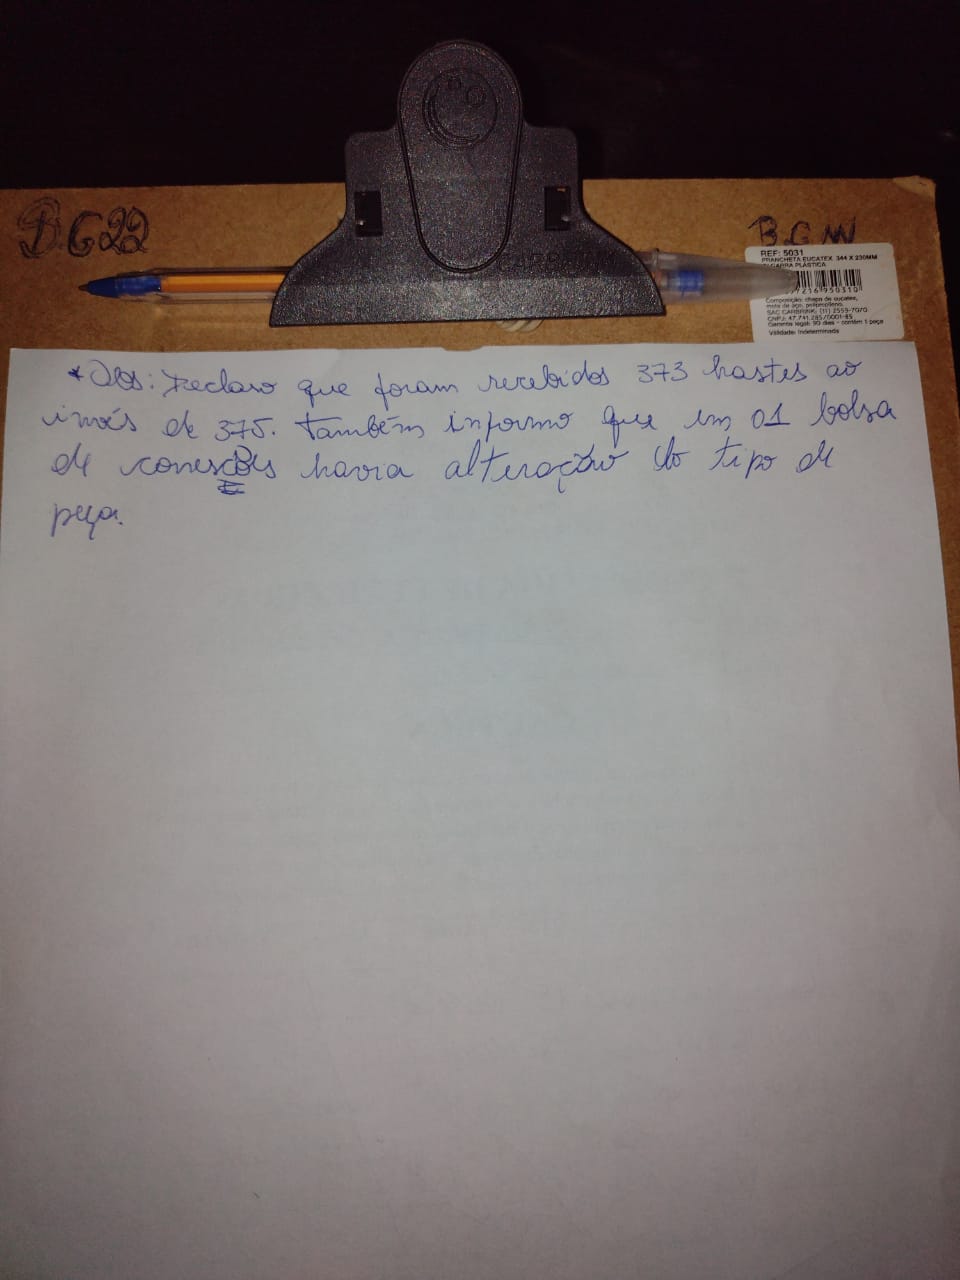 B.G22
B.G.W
REF: 5031
PRANCHETA EUCATEX 344 X 230MM
C/GARRA PLÁSTICA
7216950310
Composição: chapa de eucatex,
mola de aço, polipropileno.
SAC CARBRINK: (11) 2559-7070
CNPJ: 47.741.285/0001-85
Garantia legal: 90 dias - contém 1 peça
Validade: Indeterminada
*Obs: Declaro que foram recebidos 373 hastes ao
invés de 375. também informo que em 01 bolsa
de conescões havia alteração do tipo de
peça.